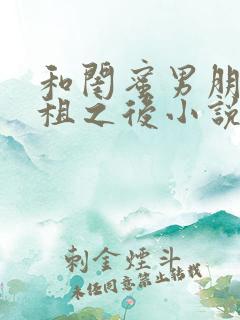 和閨蜜男朋
租之後小說
刺金煙斗
未经同意禁止转载